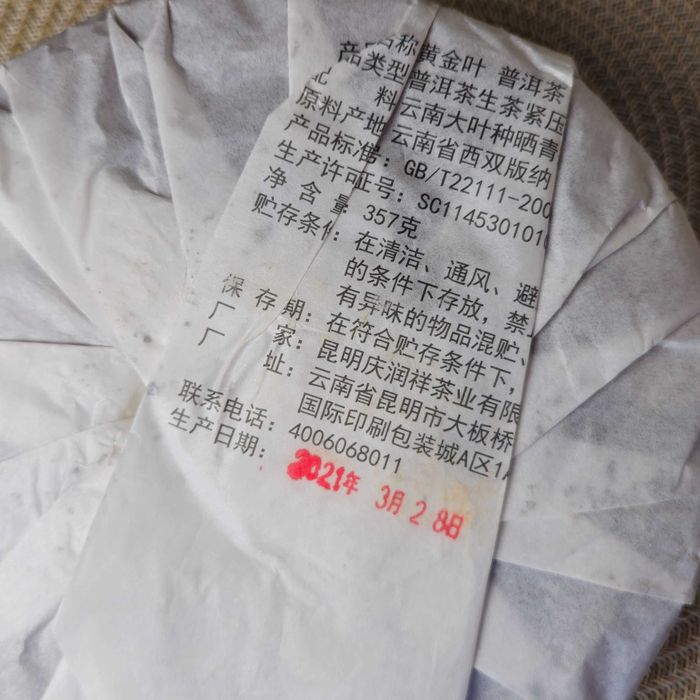 品名称黄金叶 普洱茶
产品类型普洱茶生茶紧压
配 料云南大叶种晒青
原料产地 云南省西双版纳
产品标准：GB/T22111-200
生产许可证号：SC1145301010
净含量 357克
贮存条件：在清洁、通风、避
的条件下存放，禁止
有异味的物品混贮、
保存期：在符合贮存条件下，
厂 家：昆明庆润祥茶业有限
厂 址：云南省昆明市大板桥
国际印刷包装城A区1
联系电话：4006068011
生产日期：2021年 3月28日